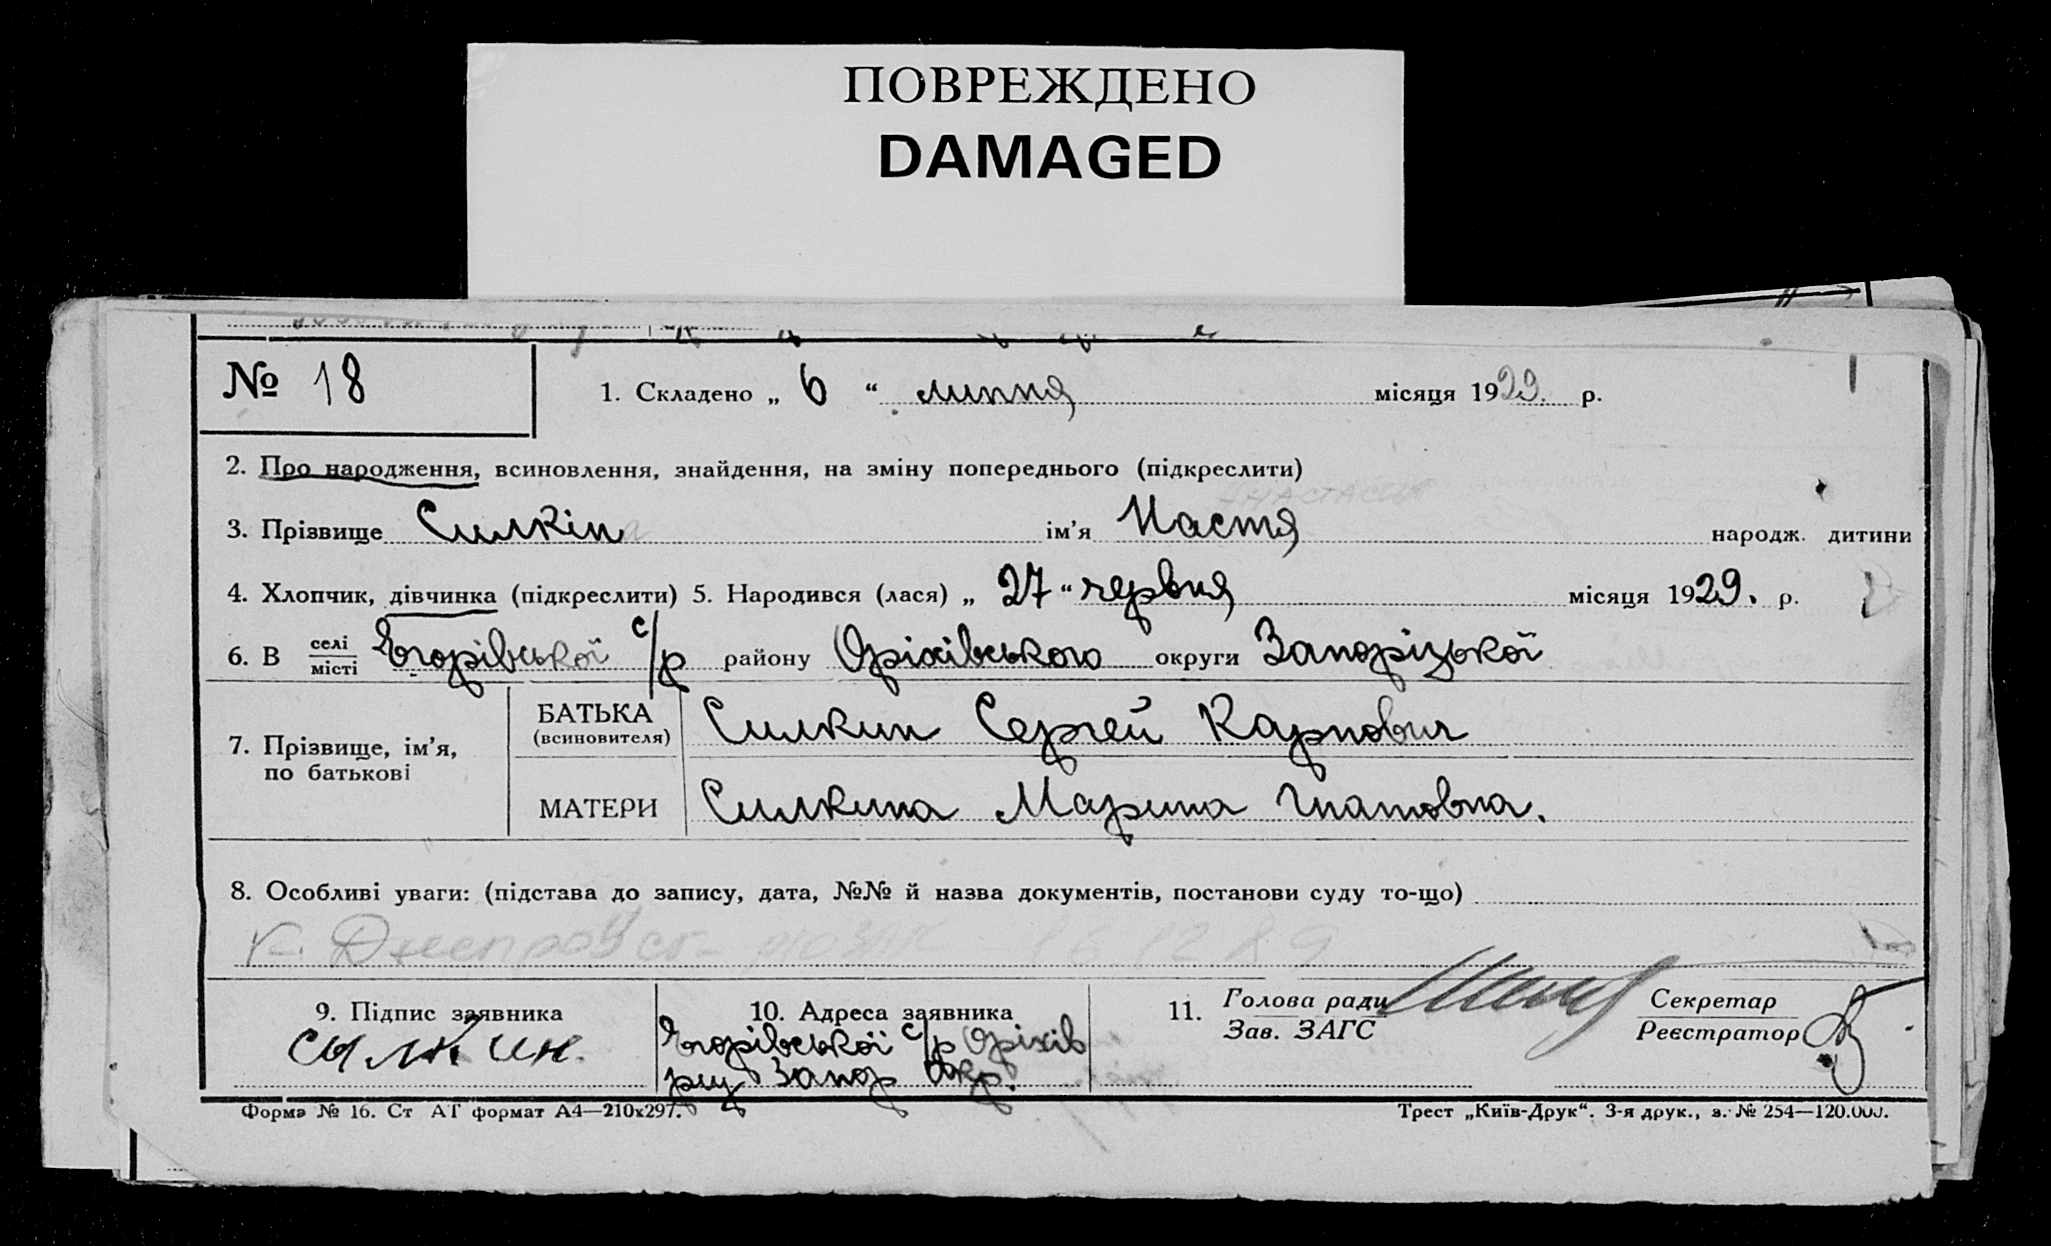 ПОВРЕЖДЕНО
DAMAGED
№ 18
1. Складено „ 6 “ липня місяця 1929. р.
2. Про народження, всиновлення, знайдення, на зміну попереднього (підкреслити)
Анастасия
3. Прізвище Силкіна ім'я Настя народж. дитини
4. Хлопчик, дівчинка (підкреслити) 5. Народився (лася) „ 27 “ червня місяця 1929. р.
6. В селі місті Єгорівської с/р району Оріхівського округи Запоріцької
7. Прізвище, ім'я, по батькові
БАТЬКА (всиновителя) Силкин Сергей Карпович
МАТЕРИ Силкина Марина Гнатовна.
8. Особливі уваги: (підстава до запису, дата, №№ й назва документів, постанови суду то-що)
16 12 89
9. Підпис заявника
Сылкин.
10. Адреса заявника
Єгорівської с/р Оріхів
рну Запор Окр.
11. Голова ради
Зав. ЗАГС
Секретар
Реєстратор
Форма № 16. Ст АТ формат А4—210x297.
Трест „Київ-Друк“. 3-я друк., з. № 254—120.000.